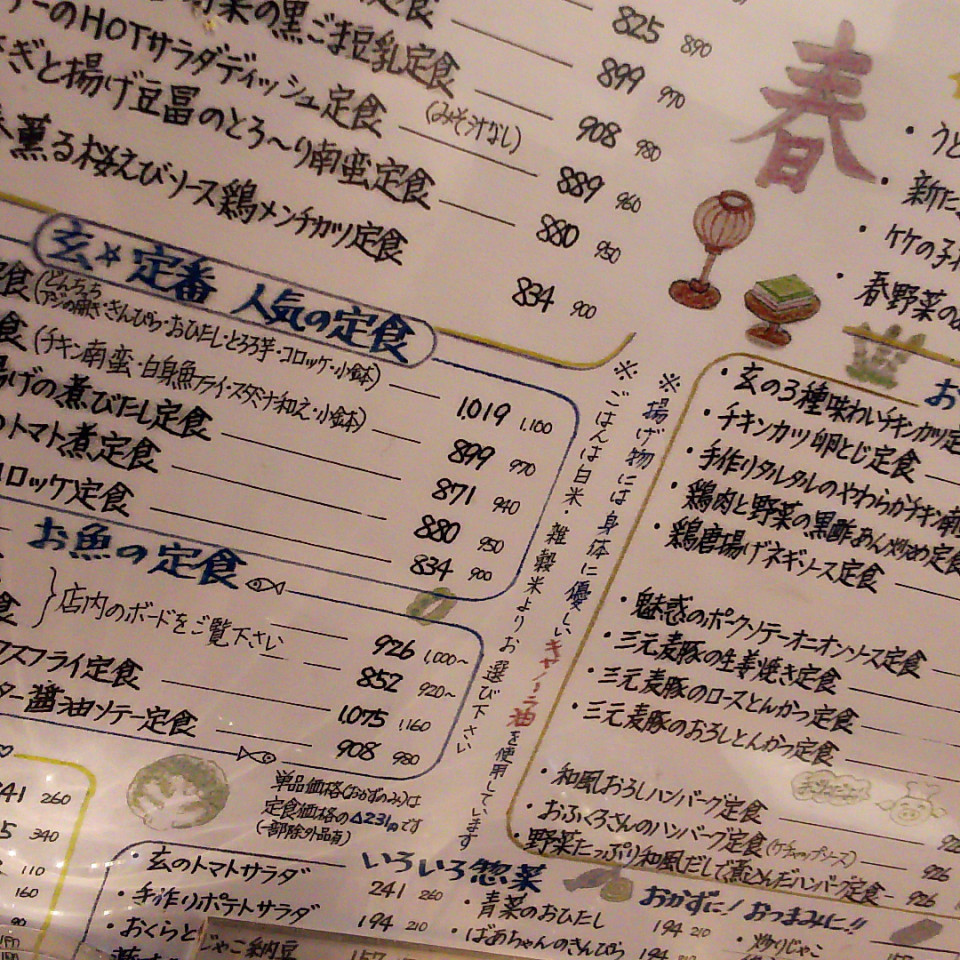 定食 825 890
野菜の黒ごま豆乳定食 899 970
のHOTサラダディッシュ定食 (みそ汁なし) 908 980
ぎと揚げ豆冨のとろ〜り南蛮定食 889 960
880 950
薫る桜えびソース鶏メンチカツ定食 834 900
玄米 定番 人気の定食
定食 (どんちっちアジの開き・きんぴら・おひたし・とろろ芋・コロッケ・小鉢) 1,019 1,100
食 (チキン南蛮・白身魚フライ・スタミナ和え・小鉢) 899 970
揚げの煮びたし定食 871 940
のトマト煮定食 880 950
コロッケ定食 834 900
お魚の定食
店内のボードをご覧下さい 926 1,000〜
食 852 920〜
スフライ定食 1,075 1,160
ター醤油ソテー定食 908 980
※ごはんは白米・雑穀米よりお選び下さい
※揚げ物には身体に優しいキャノーラ油を使用しています
春
・うど
・新た
・竹の子
・春野菜の
お
・玄の3種味わいチキンカツ定
・チキンカツ卵とじ定食
・手作りタルタルのやわらかチキン南
・鶏肉と野菜の黒酢あん炒め定食
・鶏唐揚げネギソース定食
・魅惑のポークソテーオニオンソース定食
・三元麦豚の生姜焼き定食
・三元麦豚のロースとんかつ定食
・三元麦豚のおろしとんかつ定食
・和風おろしハンバーグ定食
・おふくろさんのハンバーグ定食(ケチャップソース)
・野菜たっぷり和風だしで煮込んだハンバーグ定食 926
単品価格(おかずのみ)は
定食価格の△231円です
(一部除外品有)
241 260
340
110
160
90
いろいろ惣菜
おかずに!おつまみに!!
・玄のトマトサラダ 241 260
・手作りポテトサラダ 194 210
・おくらとじゃこ納豆 157
・青菜のおひたし 194 210
・ばあちゃんのきんぴら 194 210
・炒りじゃこ